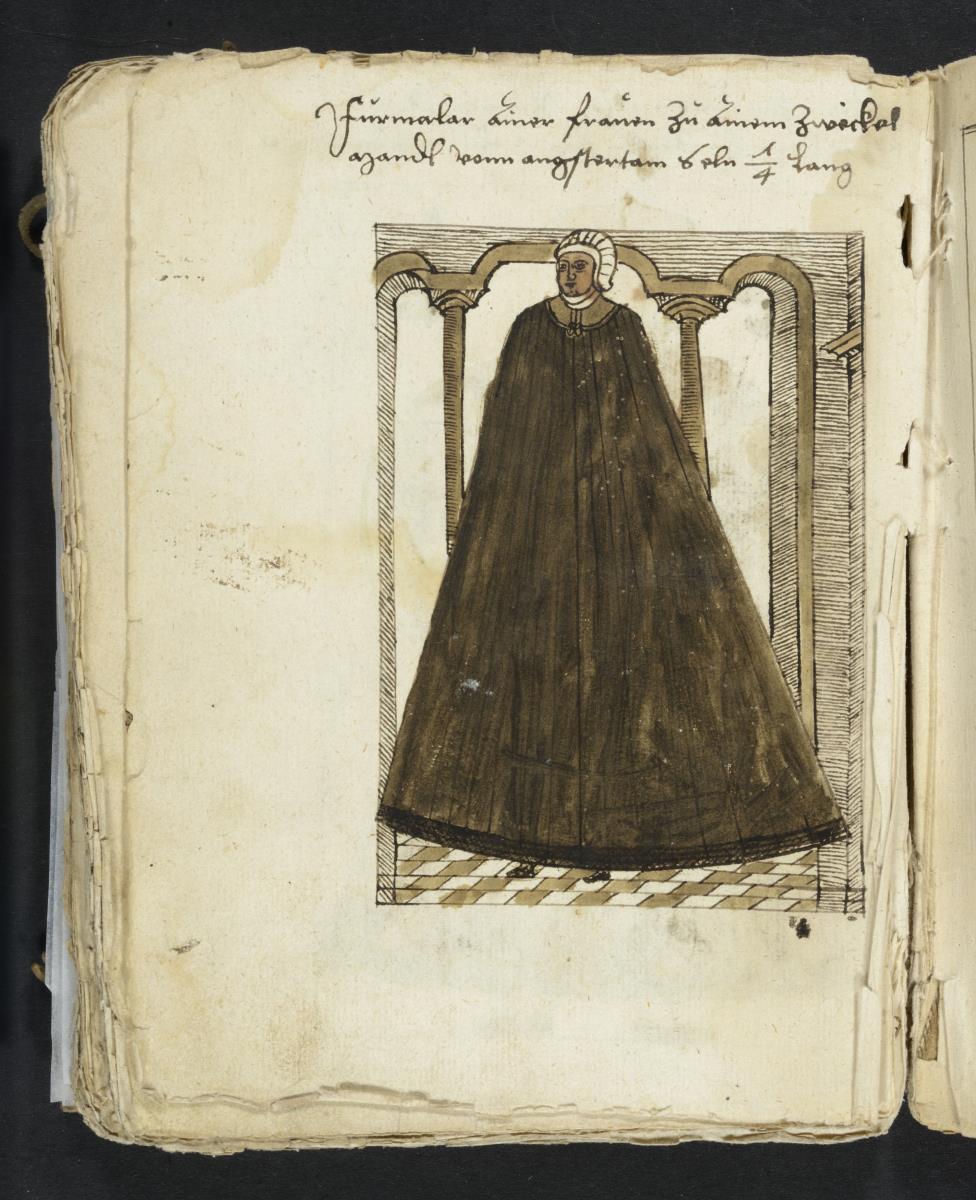 Furmalar ainer frauen zu ainem Zwickel
Mandl vonn angstertam 6 eln 1/4 lang